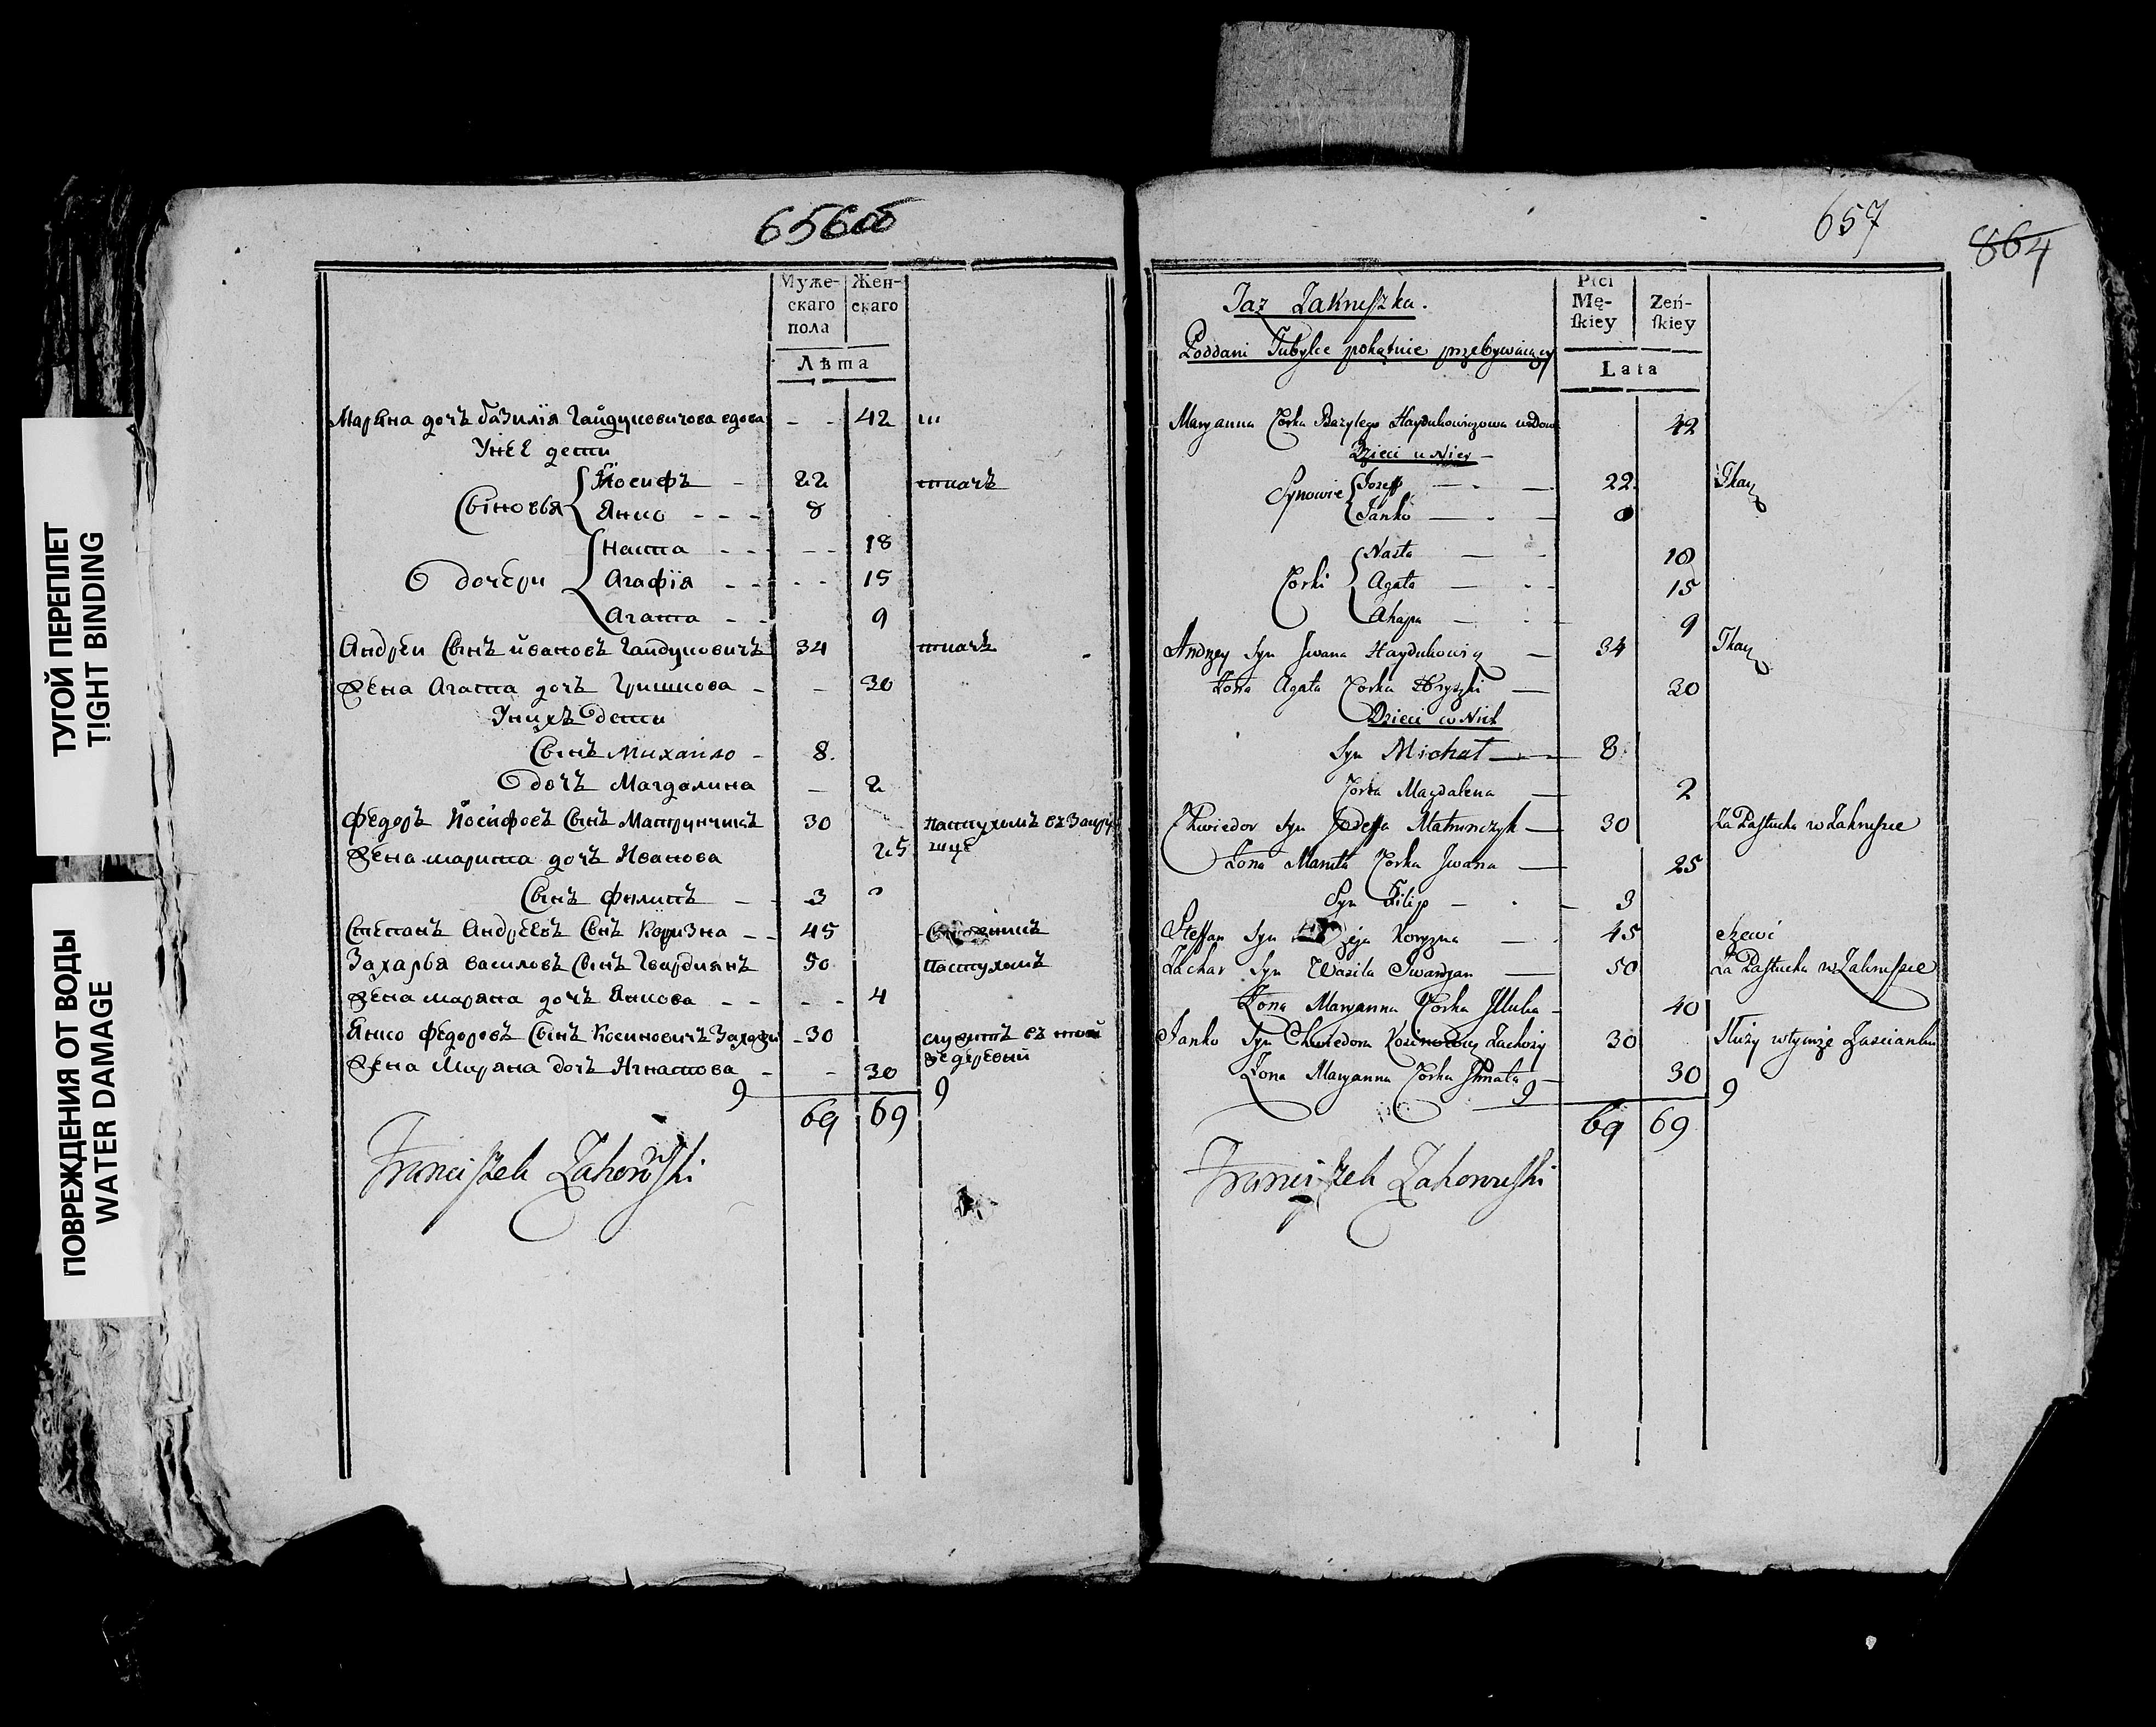 ТУГОЙ ПЕРЕПЛЕТ
TIGHT BINDING
ПОВРЕЖДЕНИЯ ОТ ВОДЫ
WATER DAMAGE
656об
Муже-
скаго
пола
Жен-
скаго
Лѣта
Маряна дочъ базилїя Гайдуковичова вдова - - 42
Унее дети
Сыновья Йосифъ - 22 ткачъ
Янко - - - 8
Дочери Наста - - - - 18
Агафїя - - - - 15
Агапа - - 9
Андреи Сынъ ивановъ Гайдуковичъ 34 ткачъ
Жена Агата дочъ Гришкова - - 30
Унихъ дети
Сынъ Михайло - 8.
дочъ Магдалина - 2
Федоръ Йосифовъ Сынъ Матрунчикъ 30 пастухомъ въ Закру
шце
Жена марита дочъ Иванова 25
Сынъ филипъ - - 3
Степанъ Андреевъ Сынъ Коризна - - 45
Захарья василовъ Сынъ Гвардиянъ 50 Пастухомъ
Жена маряна дочъ Янкова - - - - 4
Янко Федоровъ Сынъ Косиновичъ - 30 служитъ въ той
жедеревни
Жена Маряна дочъ Игнатова - - 30
9 9
69 69
Franciszek Zakowski
657
864
Jaz Zakruszka.
Poddani Tubylce pokątnie przebywaiący
Płci
Mę-
skiey
Żeń-
skiey
Lata
Maryanna Corka Bazylego Haydukowiczowa wdowa 42
Dzieci u Niey -
Synowie Jozeff 22. Tkacz
Janko 8
Corki Nasta 18
Agata 15
Ahapa 9
Andrzey Syn Jwana Haydukowicz 34 Tkacz
Żona Agata Corka Hryszki 30
Dzieci u Nich
Syn Michał 8
Corka Magdalena 2
Chwiedor Syn Jozeffa Matrunczyk 30 Za Pastucha w Zakruszce
Żona Maruta Corka Jwana 25
Syn Filip 3
Steffan Syn Koryzna 45 Szewc
Zachar Syn Wasila Gwardyan 50 Za Pastucha w Zakruszce
Żona Maryanna Corka 40
Janko Syn Chwiedora Kosinowicz 30 Służy wtymże Zascianku
Żona Maryanna Corka Jhnata 30
9 9
69 69
Franciszek Zakowski